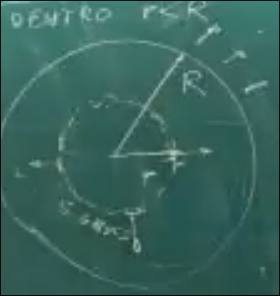 DENTRO r<R
R
r
S. GAUSS